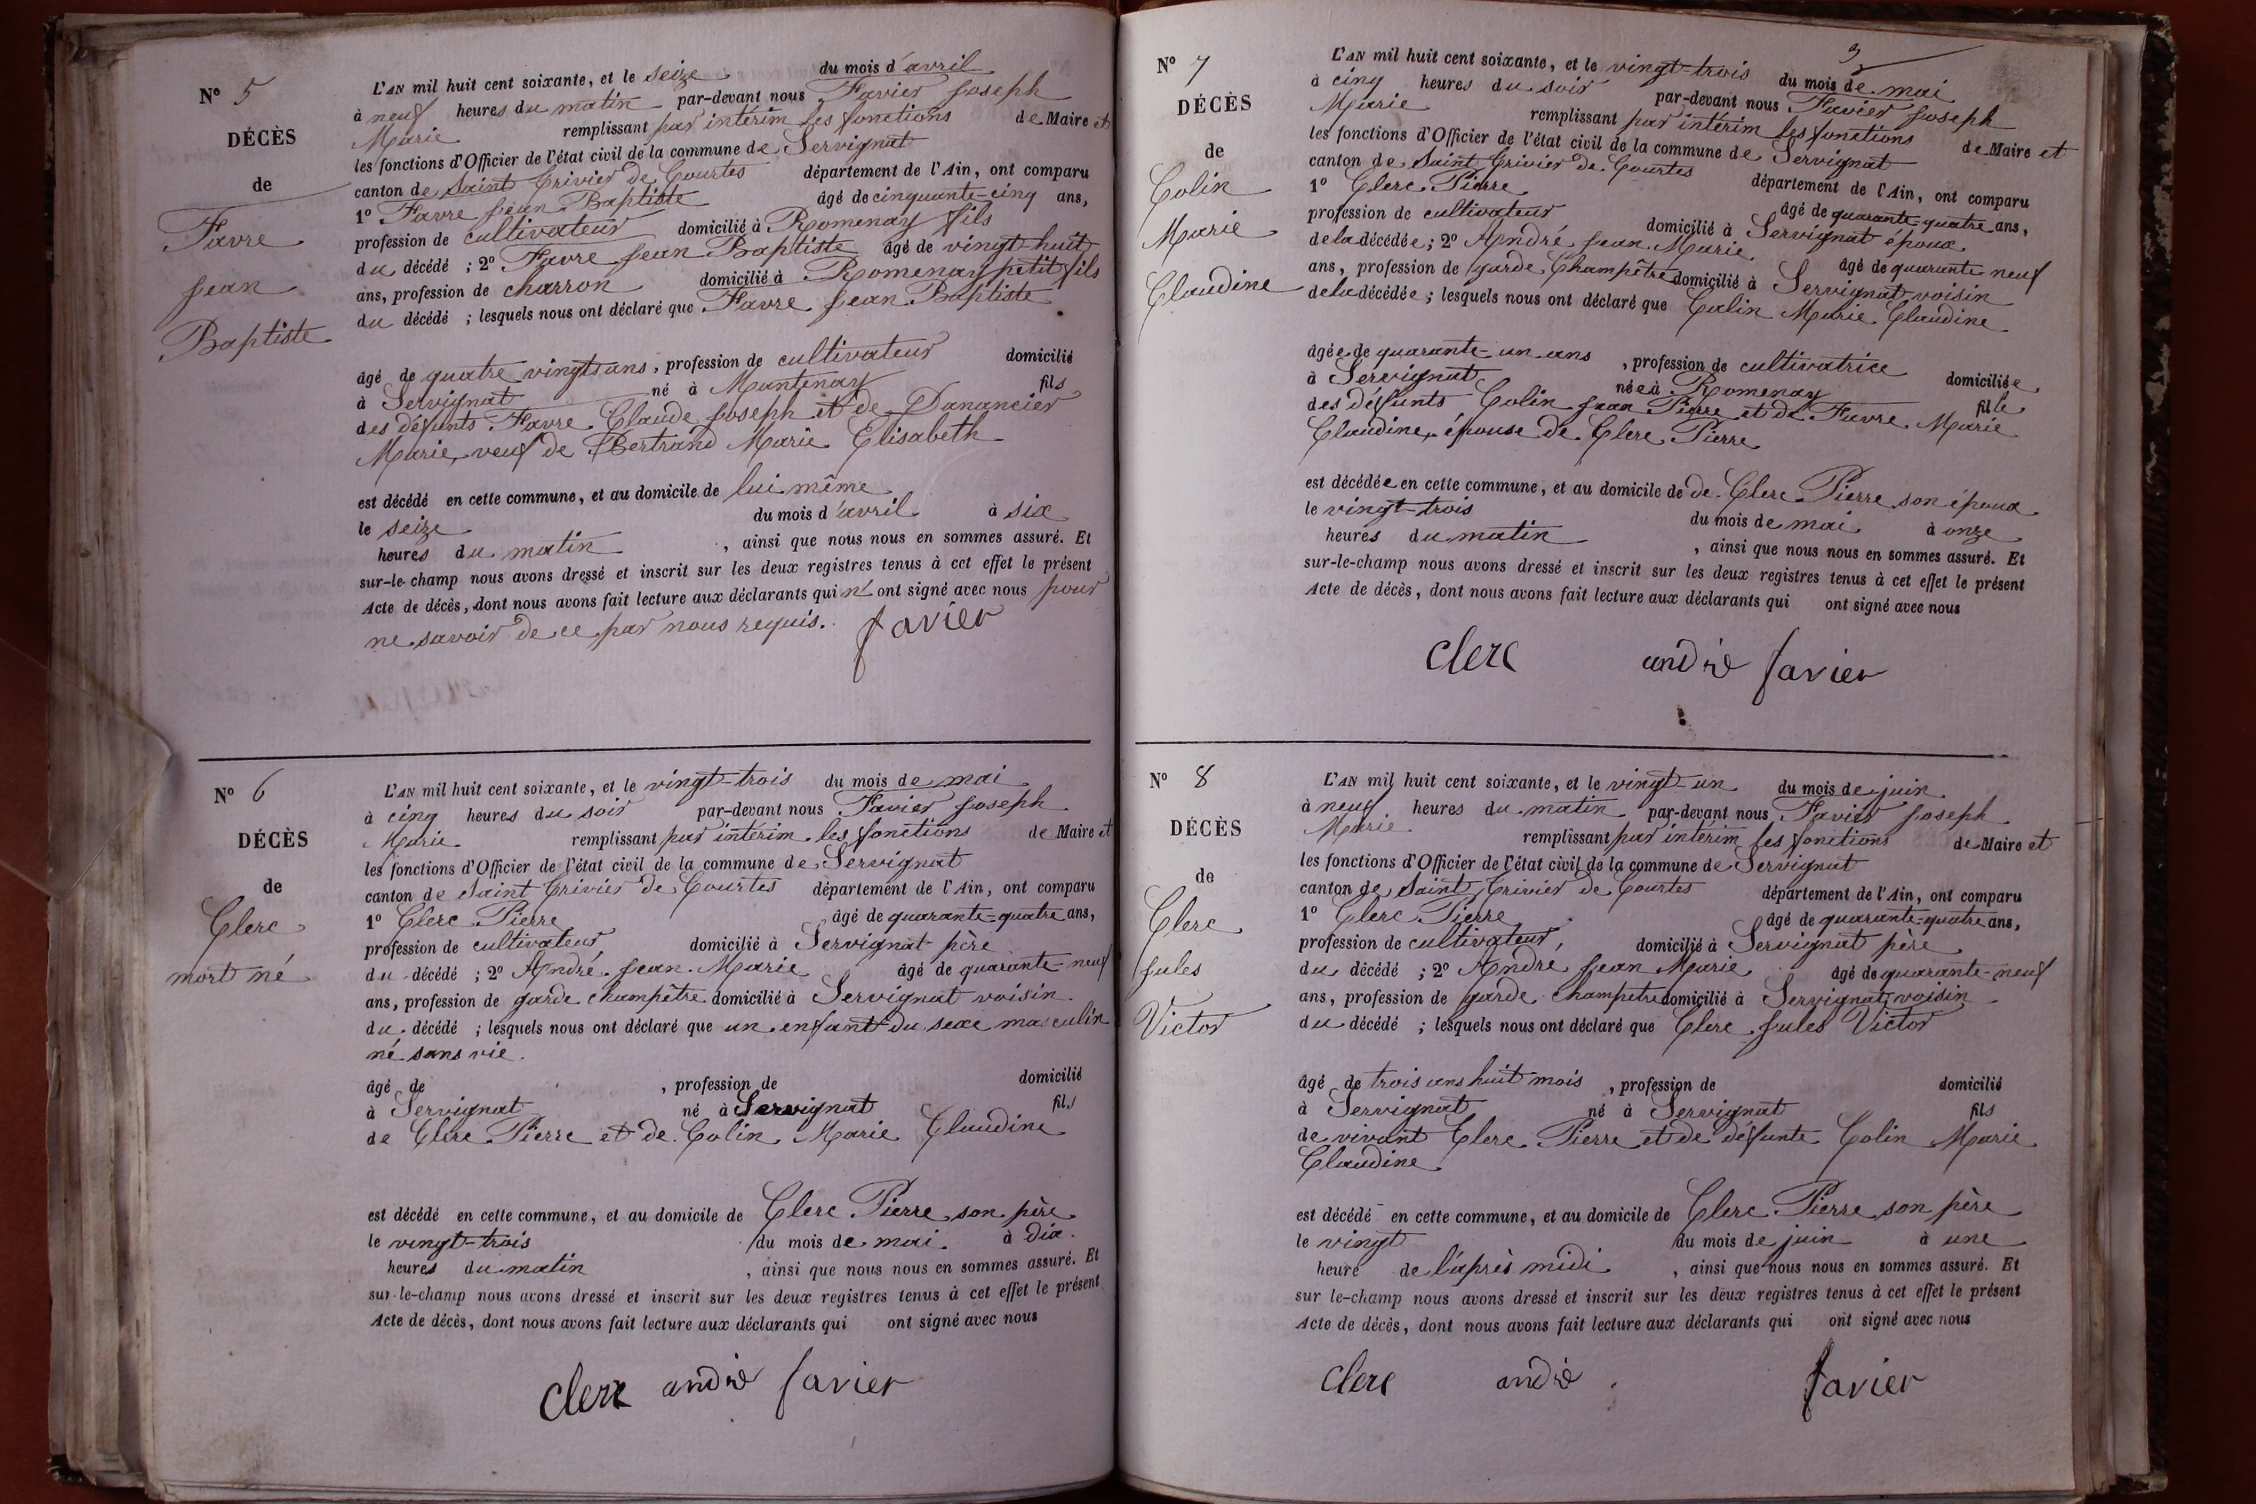 N° 5
DÉCÈS
de
Favre
Jean
Baptiste
L'AN mil huit cent soixante, et le seize du mois d'avril
à neuf heures du matin par-devant nous Favier Joseph
Marie remplissant par intérim les fonctions de Maire et
les fonctions d'Officier de l'état civil de la commune de Servignat
canton de Saint Trivier de Courtes département de l'Ain, ont comparu
1° Favre Jean Baptiste âgé de cinquante-cinq ans,
profession de cultivateur domicilié à Romenay fils
du décédé ; 2° Favre Jean Baptiste âgé de vingt-huit
ans, profession de charron domicilié à Romenay petit fils
du décédé ; lesquels nous ont déclaré que Favre Jean Baptiste
âgé de quatre vingts ans, profession de cultivateur domicilié
à Servignat né à Mantenay fils
des défunts Favre Claude Joseph et de Danancier
Marie, veuf de Bertrand Marie Elisabeth
est décédé en cette commune, et au domicile de lui même
le seize du mois d'avril à six
heures du matin , ainsi que nous nous en sommes assuré. Et
sur-le-champ nous avons dressé et inscrit sur les deux registres tenus à cet effet le présent
Acte de décès, dont nous avons fait lecture aux déclarants qui n'ont signé avec nous pour
ne savoir de ce par nous requis. favier
N° 6
DÉCÈS
de
Clerc
mort né
L'AN mil huit cent soixante, et le vingt-trois du mois de mai
à cinq heures du soir par-devant nous Favier Joseph
Marie remplissant par intérim les fonctions de Maire et
les fonctions d'Officier de l'état civil de la commune de Servignat
canton de Saint Trivier de Courtes département de l'Ain, ont comparu
1° Clerc Pierre âgé de quarante-quatre ans,
profession de cultivateur domicilié à Servignat père
du décédé ; 2° André Jean Marie âgé de quarante-neuf
ans, profession de garde champêtre domicilié à Servignat voisin
du décédé ; lesquels nous ont déclaré que un enfant du sexe masculin
né sans vie.
âgé de , profession de domicilié
à Servignat né à Servignat fils
de Clerc Pierre et de Colin Marie Claudine
est décédé en cette commune, et au domicile de Clerc Pierre son père
le vingt-trois du mois de mai à dix
heures du matin , ainsi que nous nous en sommes assuré. Et
sur-le-champ nous avons dressé et inscrit sur les deux registres tenus à cet effet le présent
Acte de décès, dont nous avons fait lecture aux déclarants qui ont signé avec nous
Clerc andré favier
N° 7
DÉCÈS
de
Colin
Marie
Claudine
L'AN mil huit cent soixante, et le vingt-trois du mois de mai
à cinq heures du soir par-devant nous Favier Joseph
Marie remplissant par intérim les fonctions de Maire et
les fonctions d'Officier de l'état civil de la commune de Servignat
canton de Saint Trivier de Courtes département de l'Ain, ont comparu
1° Clerc Pierre âgé de quarante-quatre ans,
profession de cultivateur domicilié à Servignat époux
de la décédée ; 2° André Jean Marie âgé de quarante neuf
ans, profession de garde Champêtre domicilié à Servignat voisin
de la décédée ; lesquels nous ont déclaré que Colin Marie Claudine
âgée de quarante-un ans , profession de cultivatrice domiciliée
à Servignat née à Romenay fille
des défunts Colin Jean Pierre et de Favre Marie
Claudine, épouse de Clerc Pierre
est décédée en cette commune, et au domicile de de Clerc Pierre son époux
le vingt-trois du mois de mai à onze
heures du matin , ainsi que nous nous en sommes assuré. Et
sur-le-champ nous avons dressé et inscrit sur les deux registres tenus à cet effet le présent
Acte de décès, dont nous avons fait lecture aux déclarants qui ont signé avec nous
Clerc andré favier
N° 8
DÉCÈS
de
Clerc
Jules
Victor
L'AN mil huit cent soixante, et le vingt-un du mois de juin
à neuf heures du matin par-devant nous Favier Joseph
Marie remplissant par intérim les fonctions de Maire et
les fonctions d'Officier de l'état civil de la commune de Servignat
canton de Saint Trivier de Courtes département de l'Ain, ont comparu
1° Clerc Pierre âgé de quarante-quatre ans,
profession de cultivateur, domicilié à Servignat père
du décédé ; 2° André Jean Marie âgé de quarante-neuf
ans, profession de garde Champêtre domicilié à Servignat, voisin
du décédé ; lesquels nous ont déclaré que Clerc Jules Victor
âgé de trois ans huit mois , profession de domicilié
à Servignat né à Servignat fils
de vivant Clerc Pierre et de défunte Colin Marie
Claudine
est décédé en cette commune, et au domicile de Clerc Pierre son père
le vingt du mois de juin à une
heure de l'après midi , ainsi que nous nous en sommes assuré. Et
sur le-champ nous avons dressé et inscrit sur les deux registres tenus à cet effet le présent
Acte de décès, dont nous avons fait lecture aux déclarants qui ont signé avec nous
Clerc andré favier